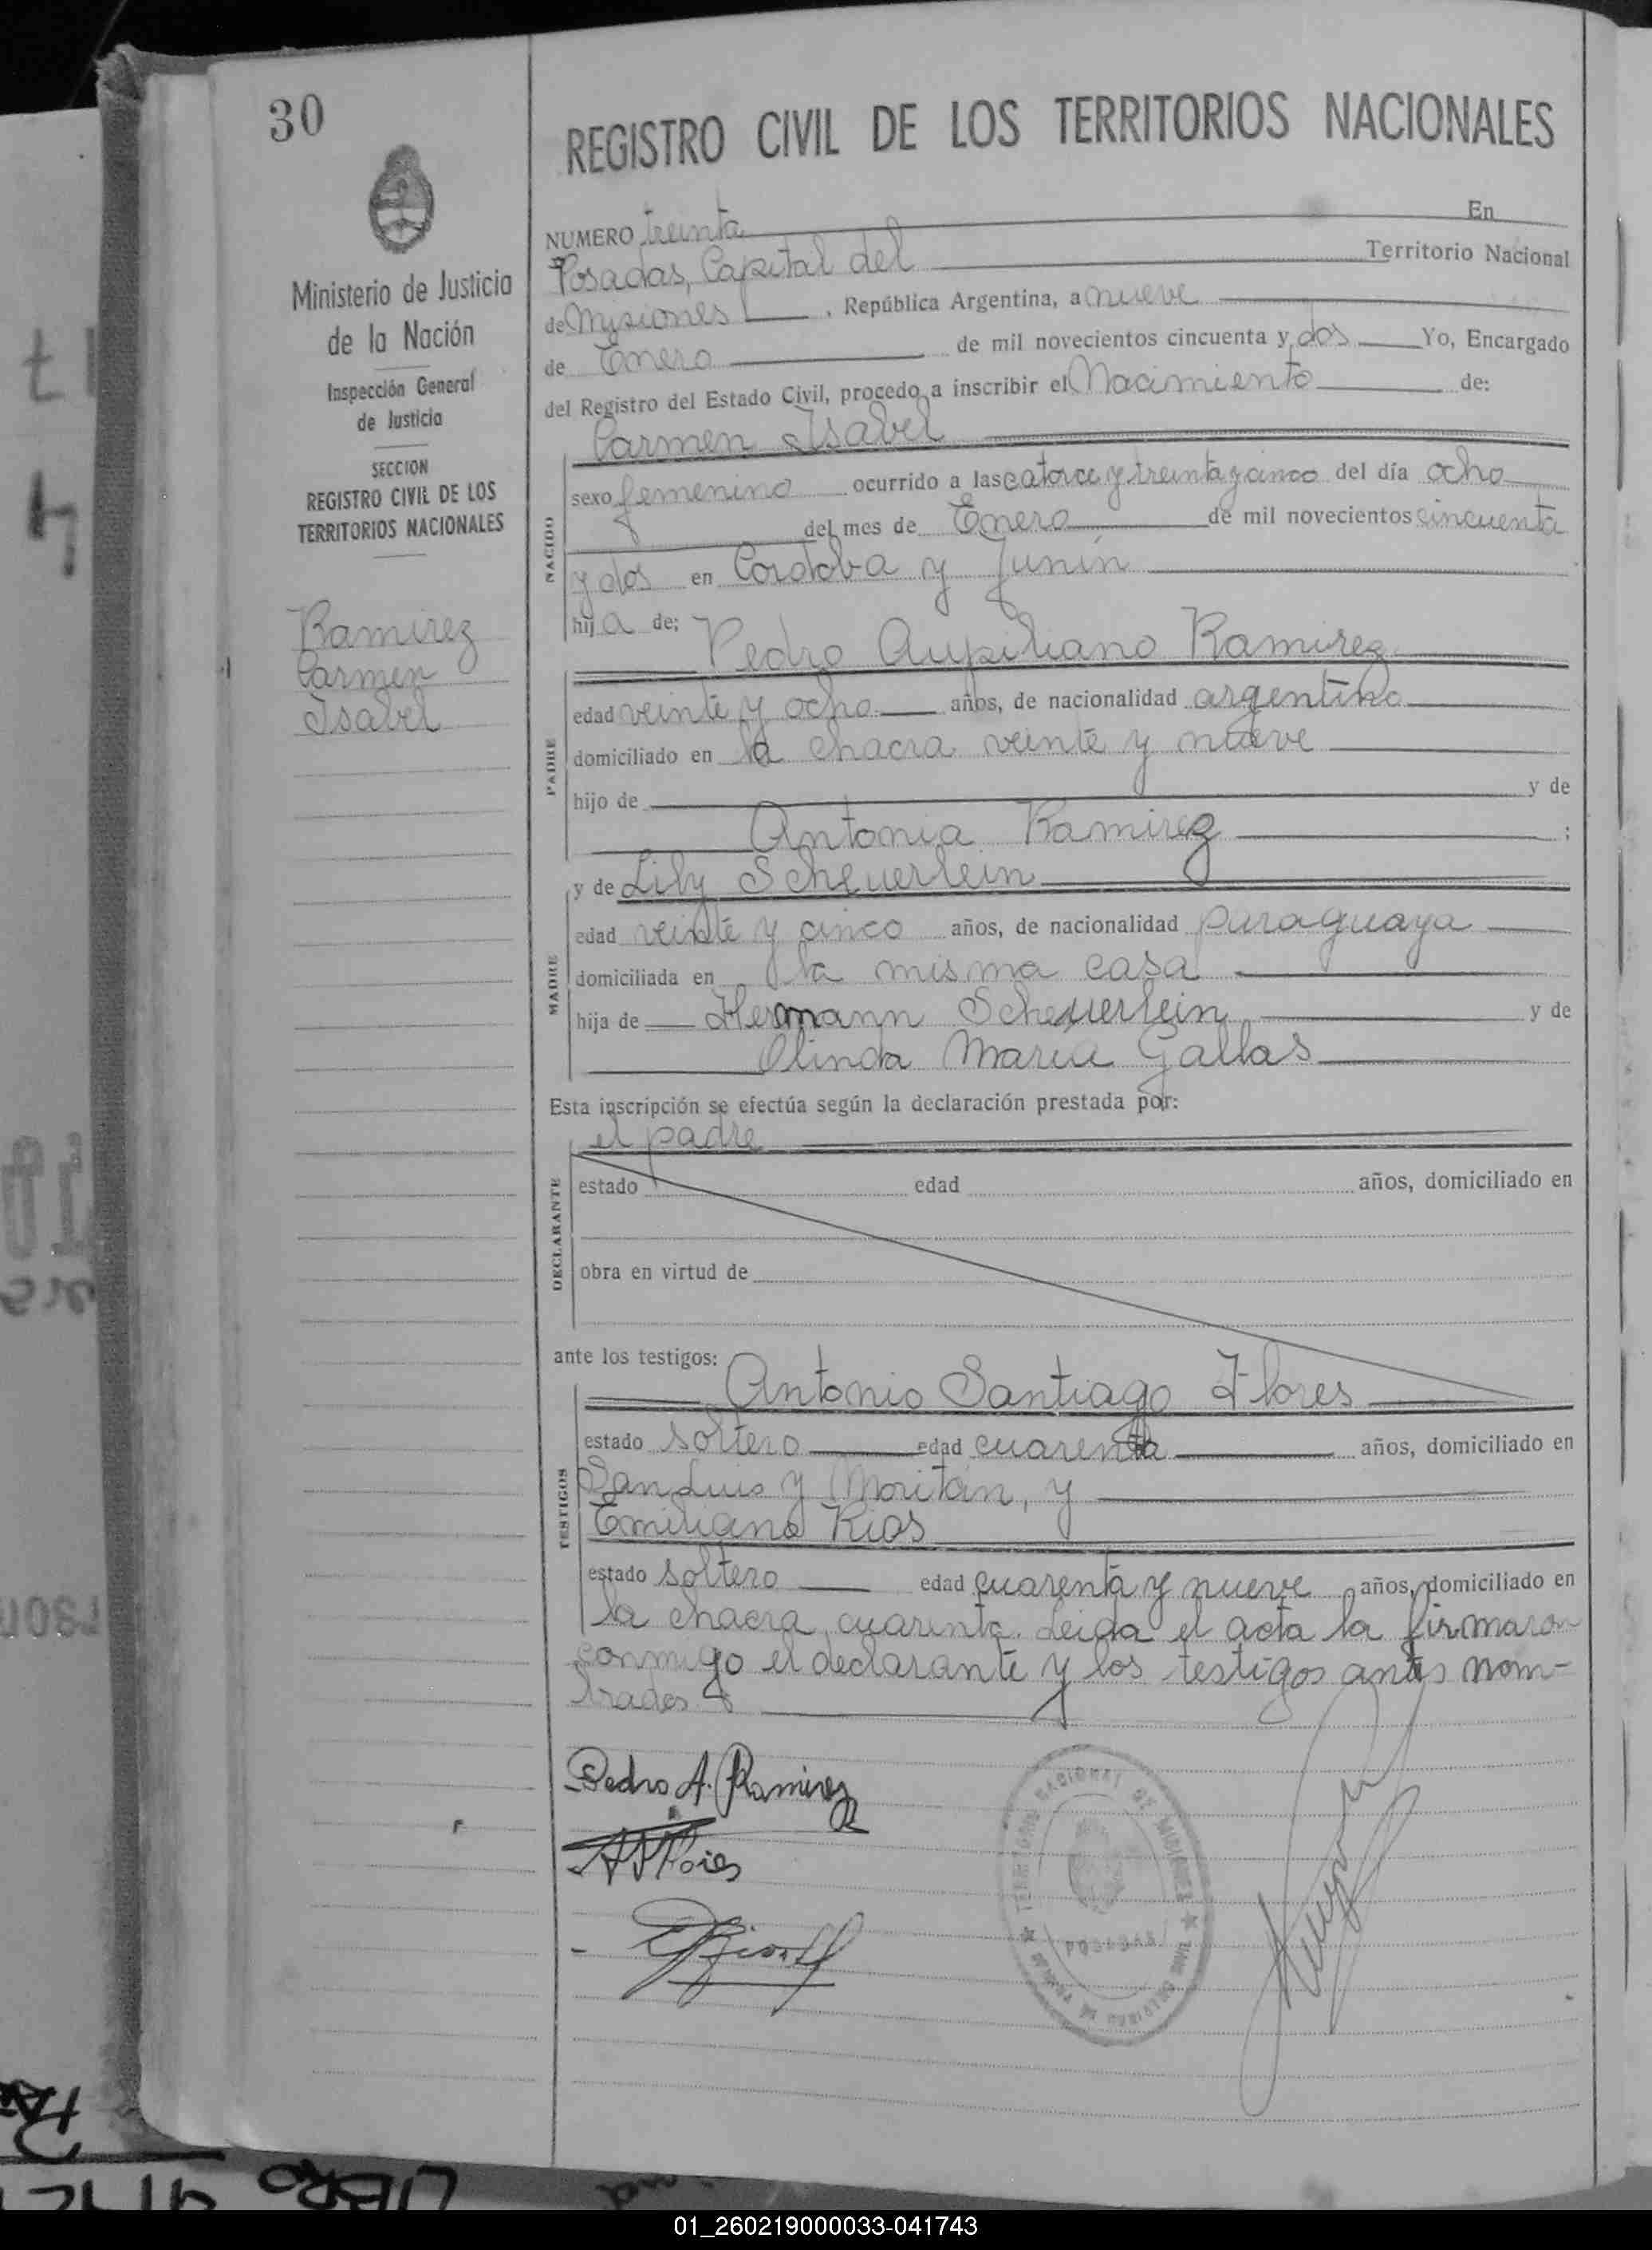 30
REGISTRO CIVIL DE LOS TERRITORIOS NACIONALES
Ministerio de Justicia
de la Nación
Inspección General
de Justicia
SECCION
REGISTRO CIVIL DE LOS
TERRITORIOS NACIONALES
Ramirez
Carmen
Isabel
NUMERO treinta En
Posadas, Capital del Territorio Nacional
de Misiones, República Argentina, a nueve
de Enero de mil novecientos cincuenta y dos Yo, Encargado
del Registro del Estado Civil, procedo a inscribir el Nacimiento de:
Carmen Isabel
NACIDO
sexo femenino ocurrido a las catorce y treinta y cinco del día ocho
del mes de Enero de mil novecientos cincuenta
y dos en Cordoba y Junín
hija de:
Pedro Aupiliano Ramirez
PADRE
edad veinte y ocho años, de nacionalidad argentino
domiciliado en la chacra veinte y nueve
hijo de y de
Antonia Ramirez ;
y de Lily Scheuerlein
MADRE
edad veinte y cinco años, de nacionalidad paraguaya
domiciliada en la misma casa
hija de Hermann Scheuerlein y de
Olinda Maria Gallas
Esta inscripción se efectúa según la declaración prestada por:
el padre
DECLARANTE
estado edad años, domiciliado en
obra en virtud de
ante los testigos:
Antonio Santiago Flores
TESTIGOS
estado soltero edad cuarenta años, domiciliado en
San Luis y Moritán, y
Emiliano Rios
estado soltero edad cuarenta y nueve años, domiciliado en
la chacra cuarenta. Leida el acta la firmaron
conmigo el declarante y los testigos antes nom-
brados
Pedro A. Ramirez
TERRITORIO NACIONAL DE MISIONES
POSADAS
LIBRO
01_260219000033-041743